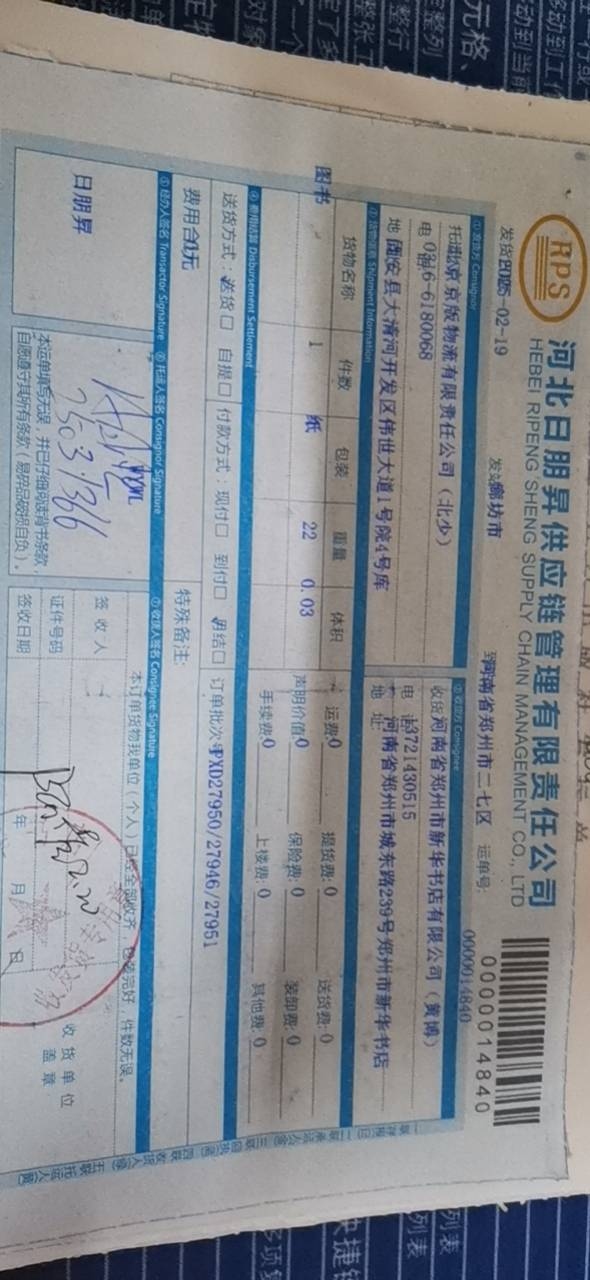 RPS
河北日朋昇供应链管理有限责任公司
HEBEI RIPENG SHENG SUPPLY CHAIN MANAGEMENT CO., LTD
0000014840
-02-19
廊坊市
河南省郑州市二七区 运单号:
0000014840
① 发货方 Consignor
② 收货方 Consignee
北京京版物流有限责任公司(北少)
河南省郑州市新华书店有限公司(黄博)
电 6-6180068
电 3721430515
地 固安县大清河开发区伟世大道1号院4号库
地址 河南省郑州市城东路239号郑州市新华书店
③ 货物信息 Shipment Information
货物名称 件数 包装 重量 体积
图书 1 纸 22 0.03
运费:0 提货费:0 送货费:0
声明价值:0 保险费:0 装卸费:0
手续费:0 上楼费:0 其他费:0
④ 费用结算 Disbursement Settlement
送货方式:送货□ 自提□ 付款方式:现付□ 到付□ 月结□
订单批次号PXD27950/27946/27951
费用合 0元
特殊备注:
⑤ 经办人签名 Transactor Signature
⑥ 托运人签名 Consignor Signature
⑦ 收货人签名 Consignee Signature
日朋昇
本运单填写无误,并已仔细阅读背书条款,
自愿遵守其所有条款(易碎品破损自负)。
本订单货物我单位(个人)已经全部收齐,包装完好,件数无误。
签收人
证件号码
签收日期
年 月 日
收货单位
盖章